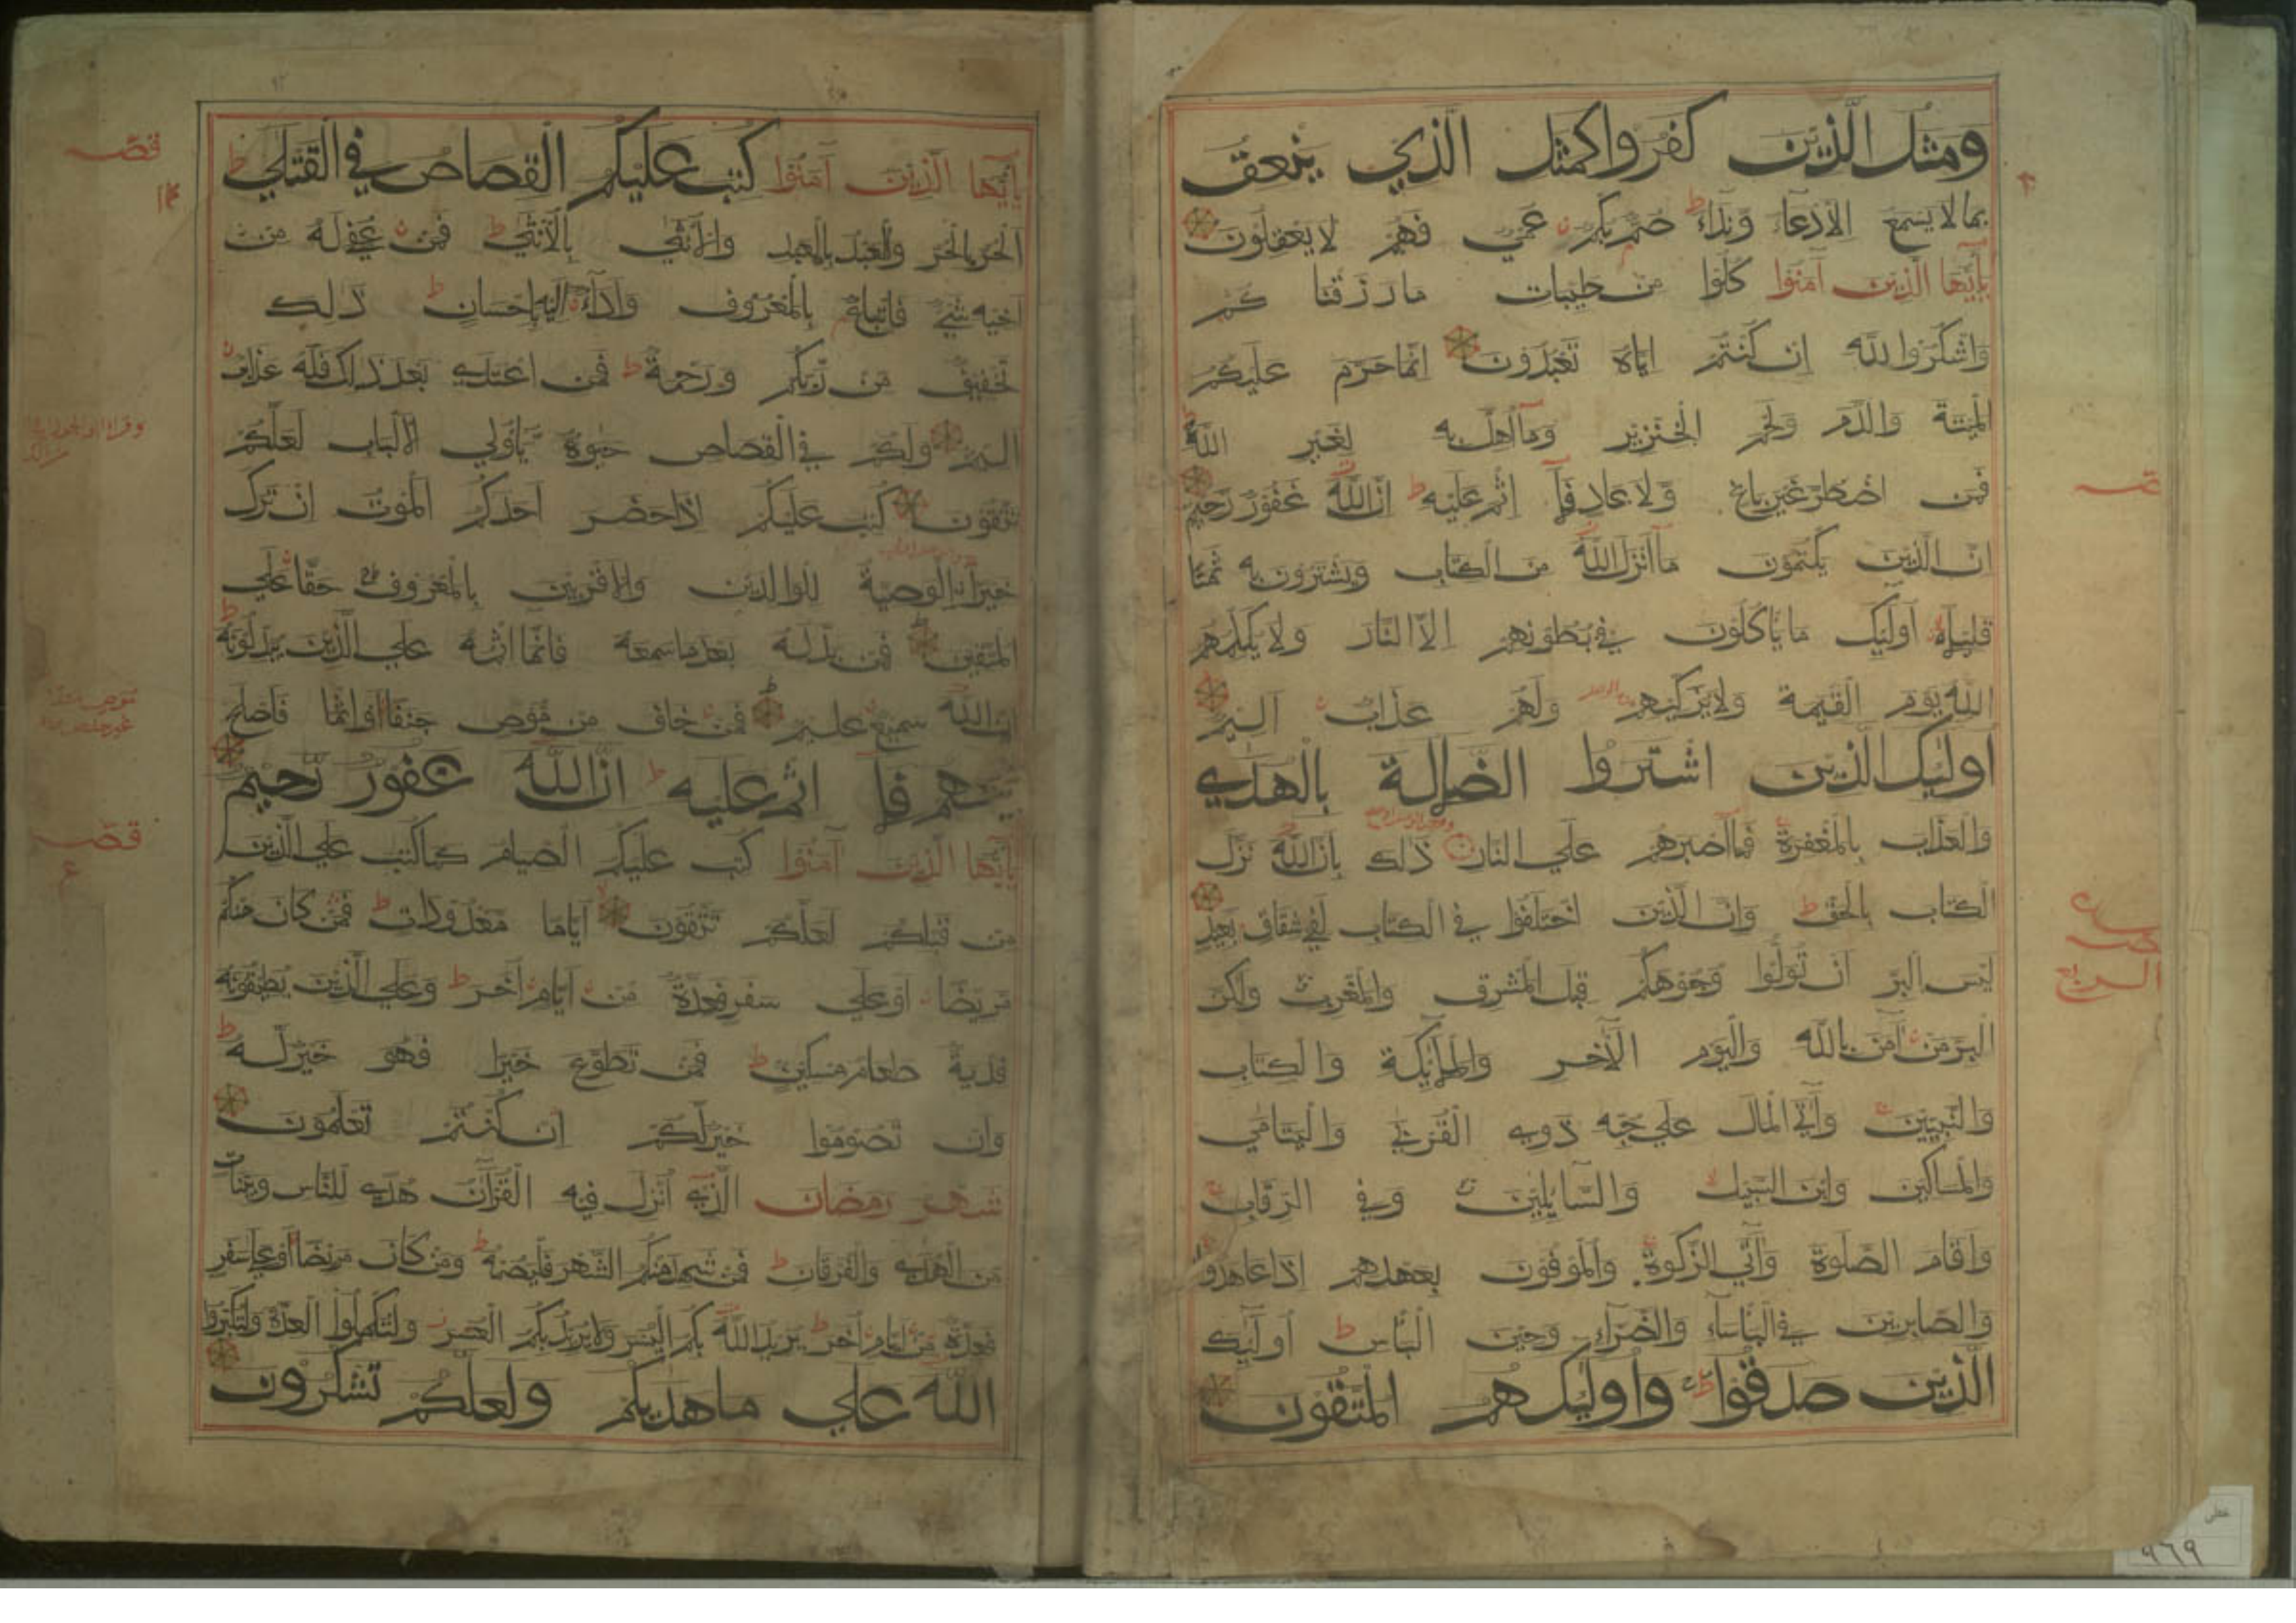 ومثل الذين كفروا كمثل الذي ينعق
بما لا يسمع الا دعآء ونداء ط صم بكم عمي فهم لا يعقلون
يا ايها الذين آمنوا كلوا من طيبات ما رزقنا كم
واشكروا لله ان كنتم اياه تعبدون انما حرم عليكم
الميتة والدم ولحم الخنزير ومآ اهل به لغير الله
فمن اضطر غير باغ ولا عاد فلآ اثم عليه ط ان الله غفور رحيم
ان الذين يكتمون مآ انزل الله من الكتاب ويشترون به ثمنا
قليلا اولئك ما ياكلون في بطونهم الا النار ولا يكلمهم
الله يوم القيمة ولا يزكيهم ولهم عذاب اليم
اولئك الذين اشتروا الضلالة بالهدي
والعذاب بالمغفرة فمآ اصبرهم علي النار ذلك بان الله نزل
الكتاب بالحق ط وان الذين اختلفوا في الكتاب لفي شقاق بعيد
ليس البر ان تولوا وجوهكم قبل المشرق والمغرب ولكن
البر من آمن بالله واليوم الآخر والملآئكة والكتاب
والنبيين وآتي المال علي حبه ذوي القربي واليتامي
والمساكين وابن السبيل والسآئلين وفي الرقاب
واقام الصلوة وآتي الزكوة والموفون بعهدهم اذا عاهدوا
والصابرين في الباسآء والضرآء وحين الباس ط اولئك
الذين صدقوا ط واولئك هم المتقون
يا ايها الذين آمنوا كتب عليكم القصاص في القتلي ط
الحر بالحر والعبد بالعبد والانثي بالانثي ط فمن عفي له من
اخيه شيء فاتباع بالمعروف وادآء اليه باحسان ط ذلك
تخفيف من ربكم ورحمة ط فمن اعتدي بعد ذلك فله عذاب
اليم ولكم في القصاص حيوة يآ اولي الالباب لعلكم
تتقون كتب عليكم اذا حضر احدكم الموت ان ترك
خيرا الوصية للوالدين والاقربين بالمعروف حقا علي
المتقين فمن بدله بعد ما سمعه فانمآ اثمه علي الذين يبدلونه ط
ان الله سميع عليم فمن خاف من موص جنفا او اثما فاصلح
بينهم فلآ اثم عليه ط ان الله غفور رحيم
يا ايها الذين آمنوا كتب عليكم الصيام كما كتب علي الذين
من قبلكم لعلكم تتقون اياما معدودات ط فمن كان منكم
مريضا او علي سفر فعدة من ايام اخر ط وعلي الذين يطيقونه
فدية طعام مسكين ط فمن تطوع خيرا فهو خير له ط
وان تصوموا خير لكم ان كنتم تعلمون
شهر رمضان الذي انزل فيه القرآن هدي للناس وبينات
من الهدي والفرقان ط فمن شهد منكم الشهر فليصمه ط ومن كان مريضا او علي سفر
فعدة من ايام اخر ط يريد الله بكم اليسر ولا يريد بكم العسر ولتكملوا العدة ولتكبروا
الله علي ما هديكم ولعلكم تشكرون
قصه
قصه
خطی
٩٦٩